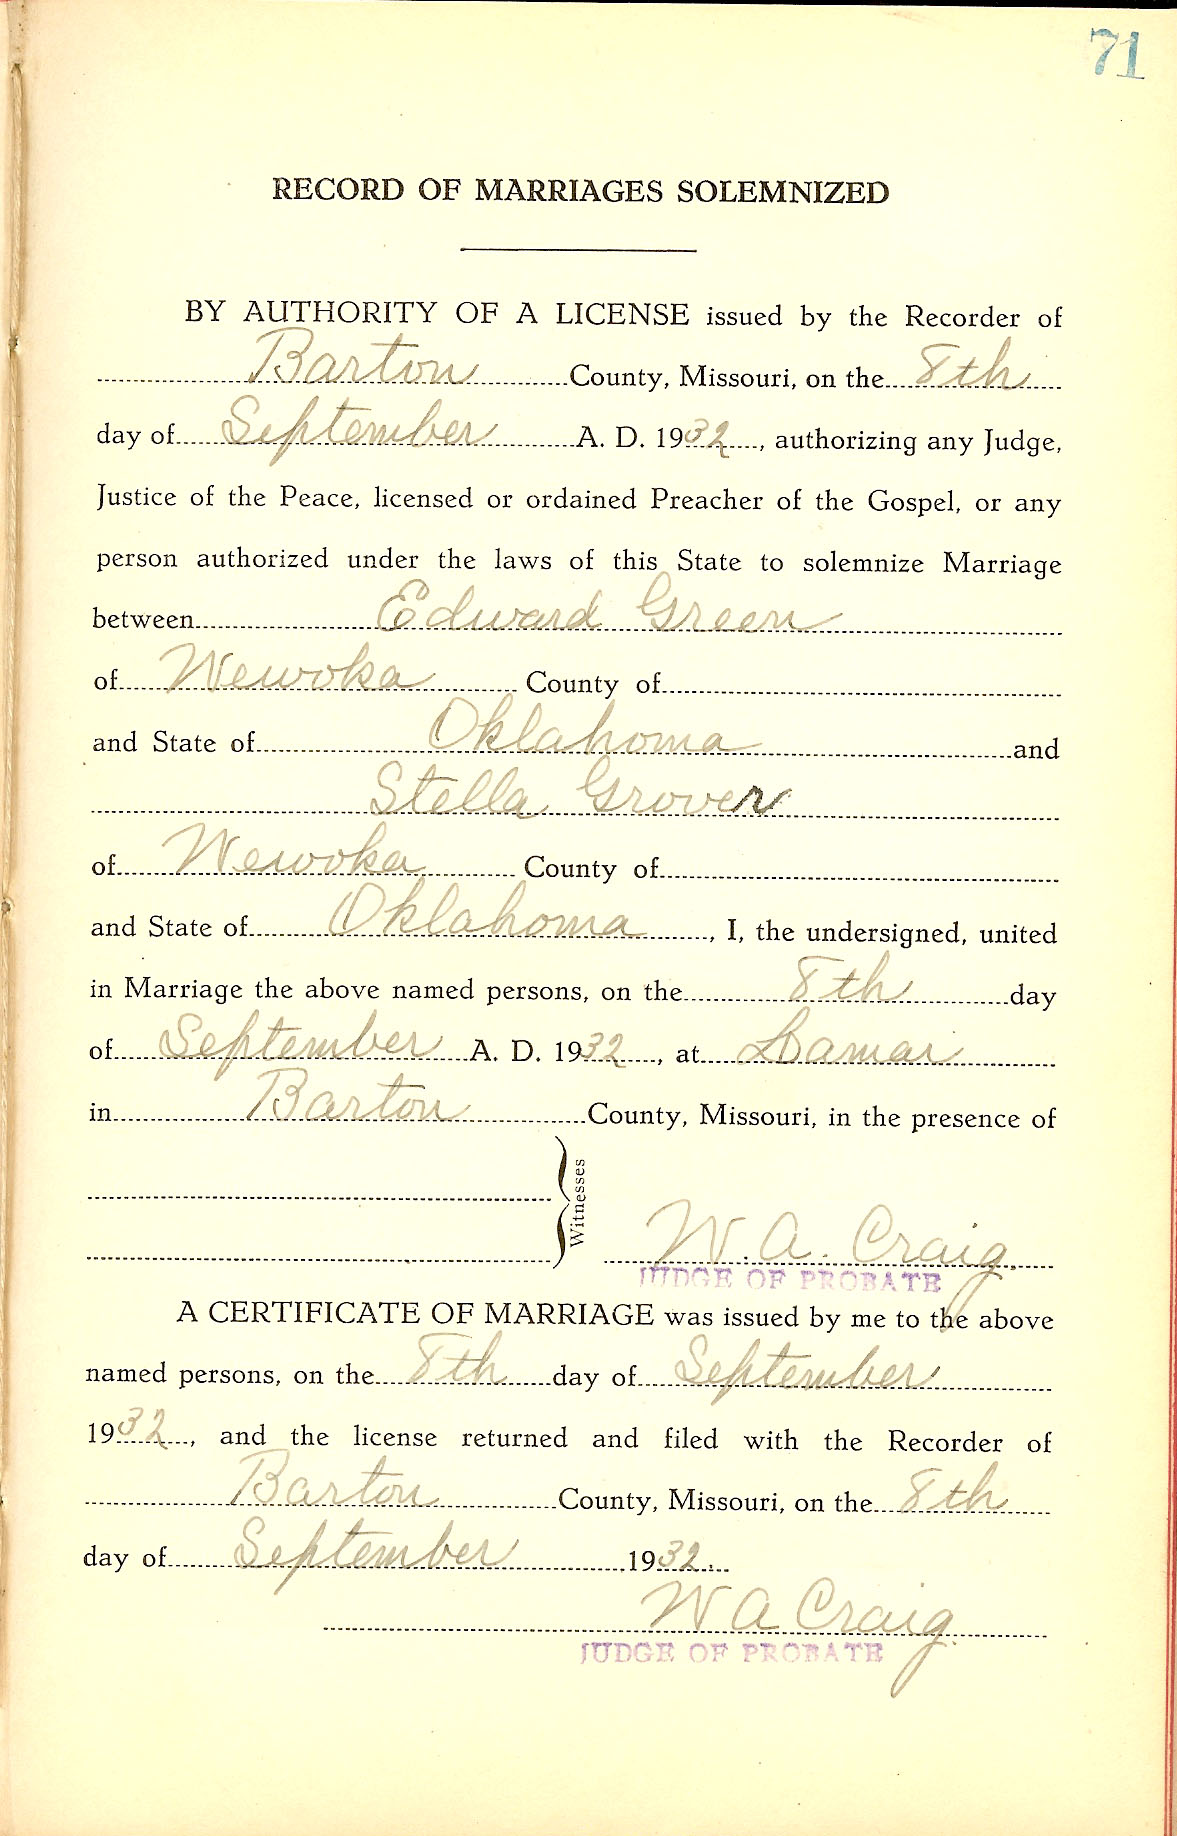 71
RECORD OF MARRIAGES SOLEMNIZED
BY AUTHORITY OF A LICENSE issued by the Recorder of
Barton County, Missouri, on the 8th
day of September A. D. 1932, authorizing any Judge,
Justice of the Peace, licensed or ordained Preacher of the Gospel, or any
person authorized under the laws of this State to solemnize Marriage
between Edward Green
of Wewoka County of
and State of Oklahoma and
Stella Grover
of Wewoka County of
and State of Oklahoma, I, the undersigned, united
in Marriage the above named persons, on the 8th day
of September A. D. 1932, at Lamar
in Barton County, Missouri, in the presence of
Witnesses
W. A. Craig.
JUDGE OF PROBATE
A CERTIFICATE OF MARRIAGE was issued by me to the above
named persons, on the 8th day of September
1932, and the license returned and filed with the Recorder of
Barton County, Missouri, on the 8th
day of September 1932.
W A Craig.
JUDGE OF PROBATE